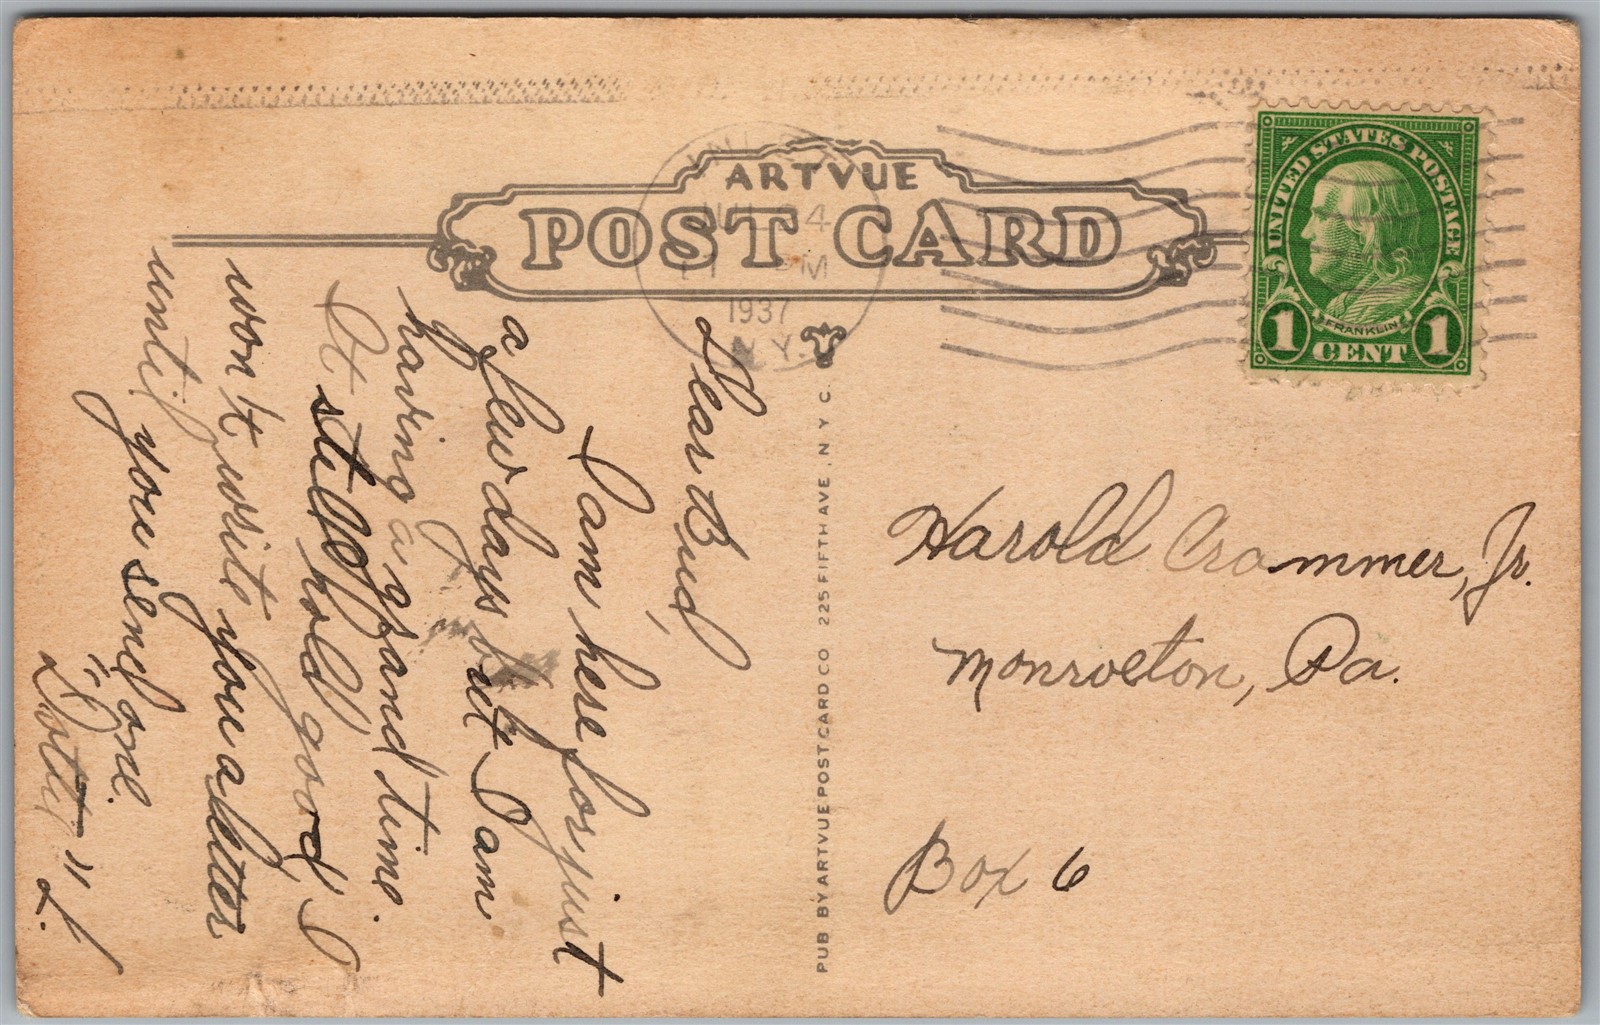 ARTVUE
POST CARD
JUL 24
PM
1937
N.Y.
UNITED STATES POSTAGE
FRANKLIN
1 CENT 1
Dear Bud,
I am here for just
a few days but I am
having a grand time.
It still hold good, I
won't write you a letter
until you send one.
"Dotty" L.
PUB BY ARTVUE POST CARD CO 225 FIFTH AVE. N Y C.
Harold Crammer, Jr.
Monroeton, Pa.
Box 6